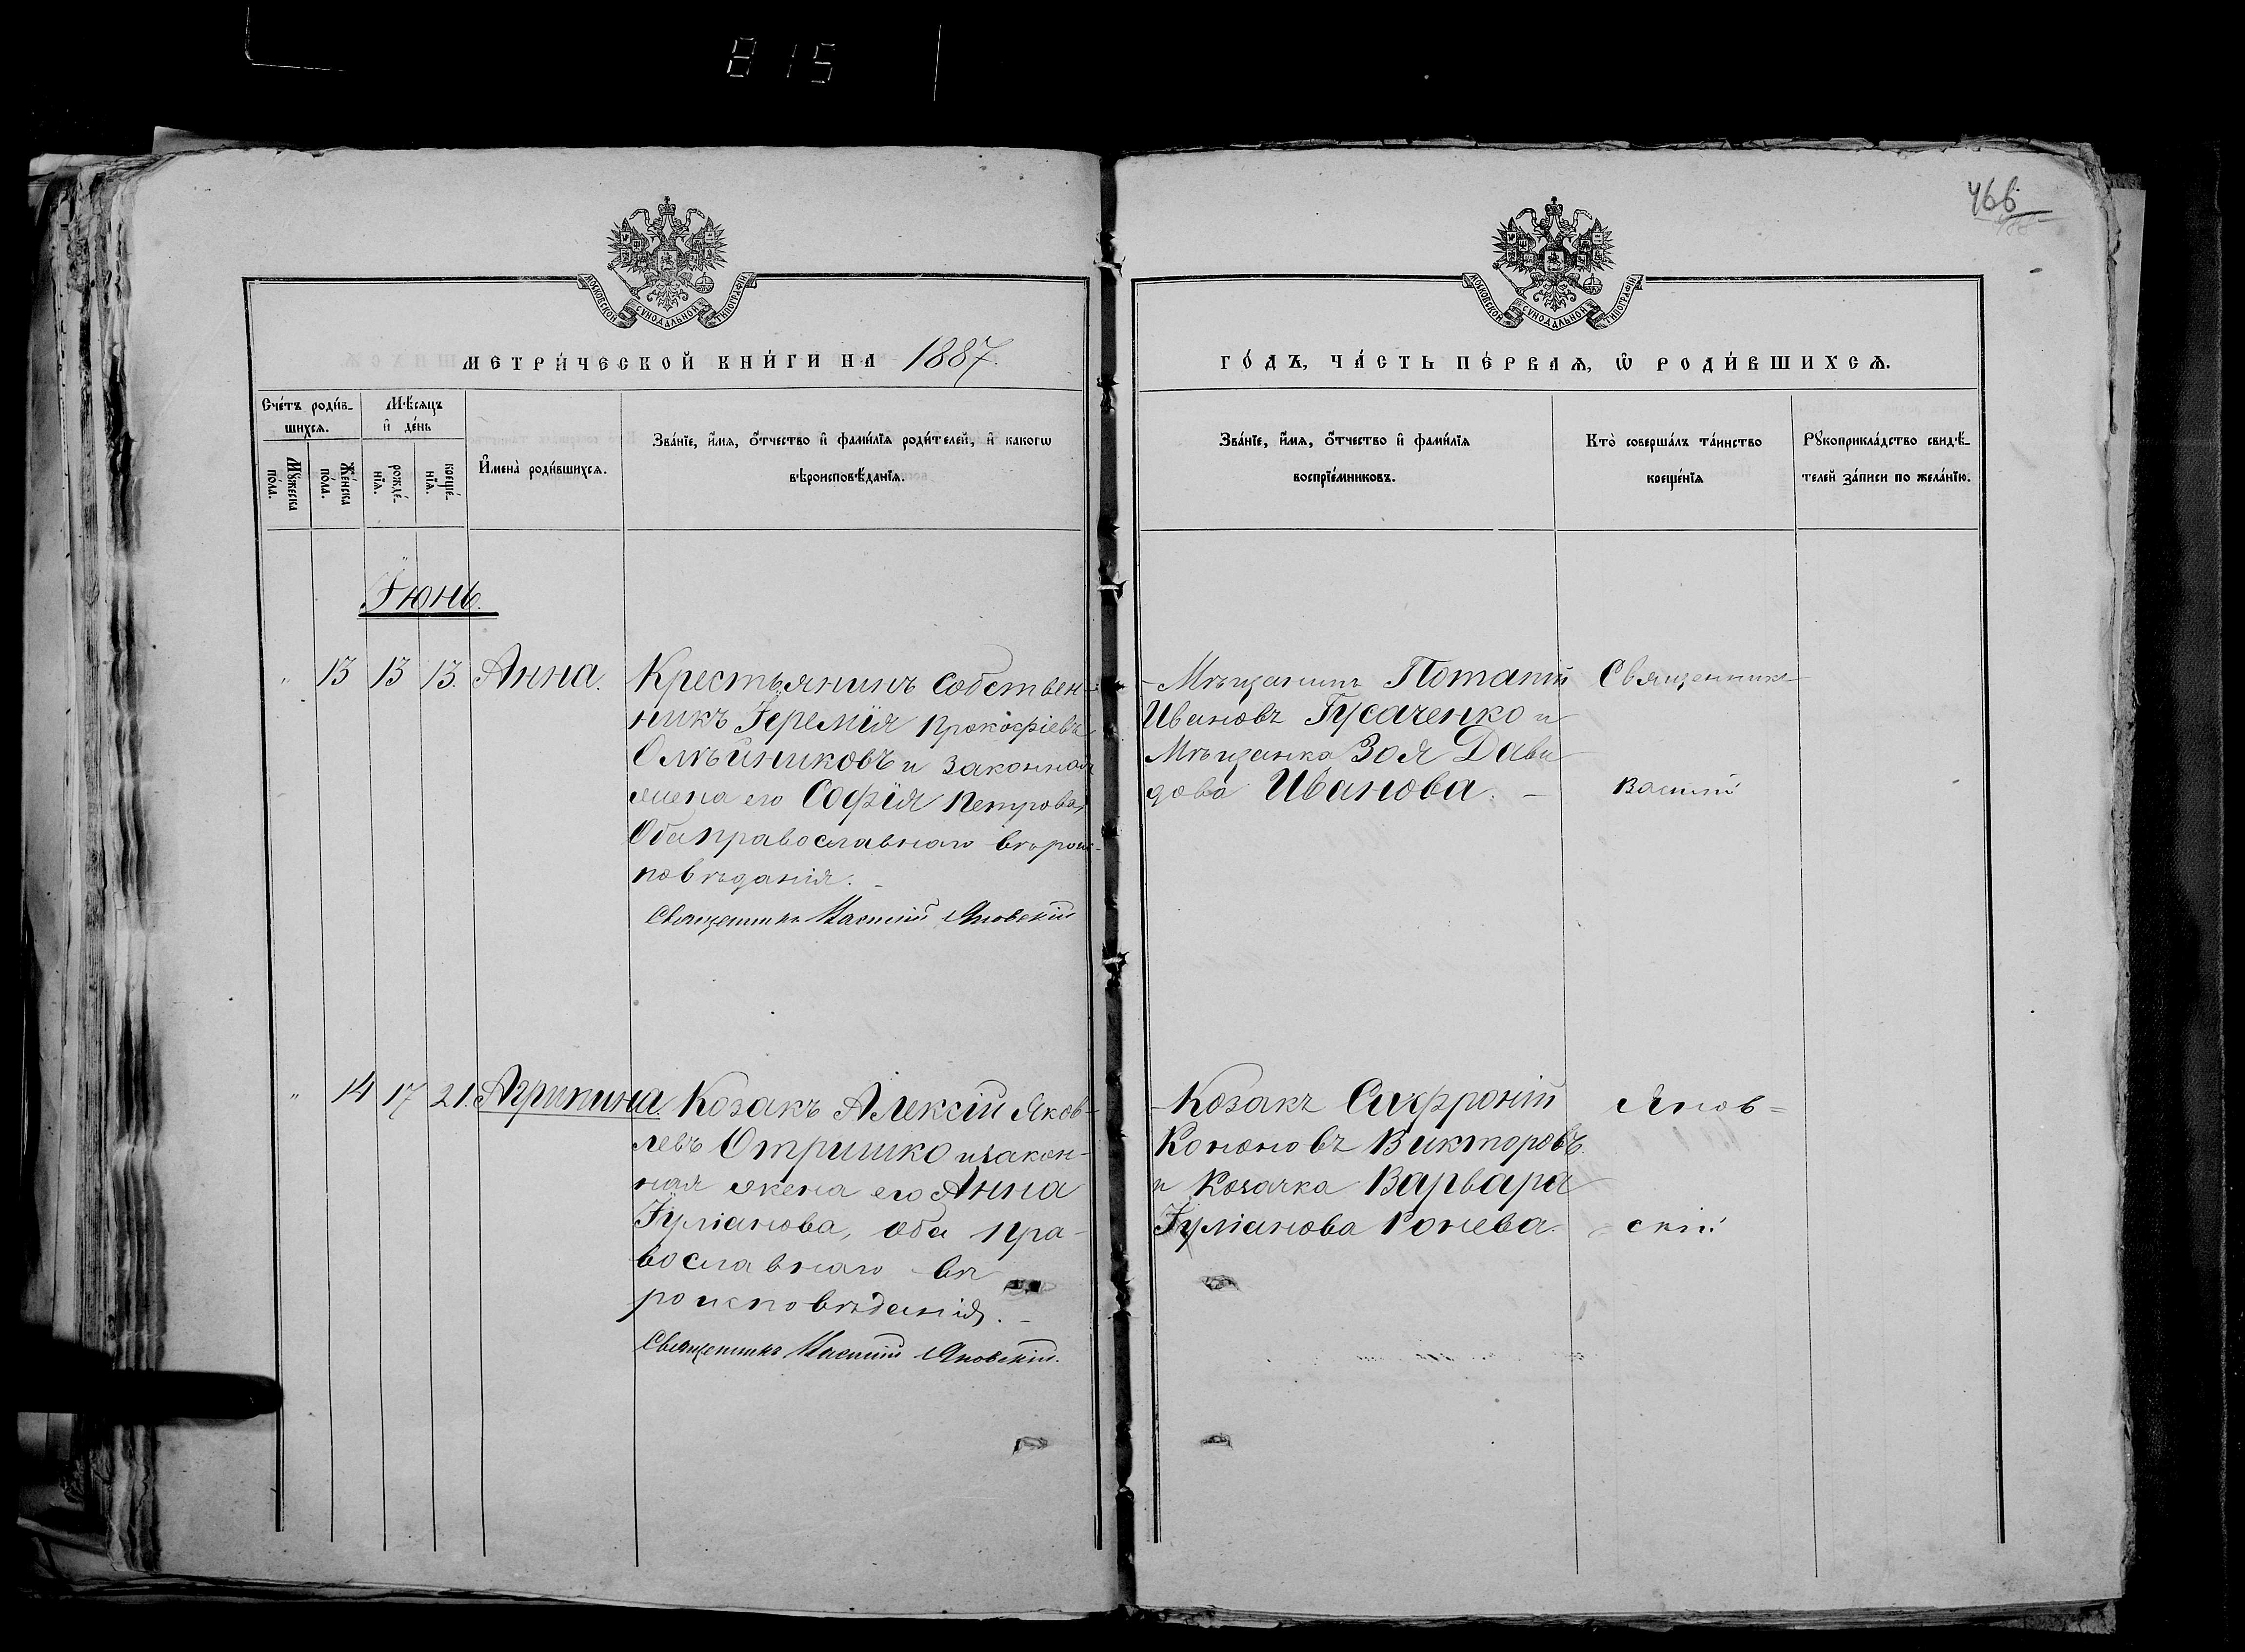 815
466
МОСКОВСКОЙ СѴНОДАЛЬНОЙ ТИПОГРАФІИ
МОСКОВСКОЙ СѴНОДАЛЬНОЙ ТИПОГРАФІИ
МЕТРИ́ЧЕСКОЙ КНИ́ГИ НА 1887.
ГО́ДЪ, ЧА́СТЬ ПЕ́РВАѦ, Ѡ РОДИ́ВШИХСѦ.
Сче́тъ роди́в-
шихсѧ.
Мꙋжеска по́ла.
Же́нска по́ла.
Мѣ́сѧцъ
и҆ де́нь
рожде́-
нїѧ.
креще́-
нїѧ.
И҆мена̀ роди́вшихсѧ.
Зва́нїе, и҆́мѧ, ѻ҆́тчество и҆ фами́лїѧ роди́телей, и҆ какогѡ
вѣроисповѣ́данїѧ.
Зва́нїе, и҆́мѧ, ѻ҆́тчество и҆ фами́лїѧ
воспрїе́мниковъ.
Кто̀ соверша́лъ та́инство
креще́нїѧ
Рꙋкоприкла́дство свидѣ́-
телей за́писи по жела́нїю.
Іюнь.
" 13 13 13. Анна.
Крестьянинъ собствен-
никъ Іеремія Прокофіевъ
Олѣйниковъ и законная
жена его Софія Петрова,
Оба православнаго вѣроис-
повѣданія. -
Священникъ Василій Яновскій
- Мѣщанинъ Потапій
Ивановъ Гусаченко и
Мѣщанка Зоя Дави
дова Иванова. -
Священникъ
Василій
" 14 17 21. Агрипина.
Козакъ Алексій Яков-
левъ Отришко и закон-
ная жена его Анна
Іуліанова, оба пра-
вославнаго вѣ
роисповѣданія. -
Священникъ Василій Яновскій.
- Козакъ Сафроній
Кононовъ Викторовъ
и Козачка Варвара
Іуліанова Конева.
Янов-
скій